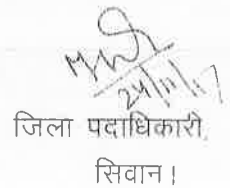 24/11/17
जिला पदाधिकारी,
सिवान।